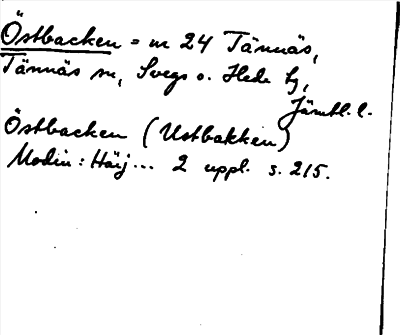 Östbacken = m 24 Tännäs,
Tännäs sn, Svegs o. Hede tg,
Jämtl. l.
Östbacken (Ustbakken)
Modin: Härj... 2 uppl. s. 215.